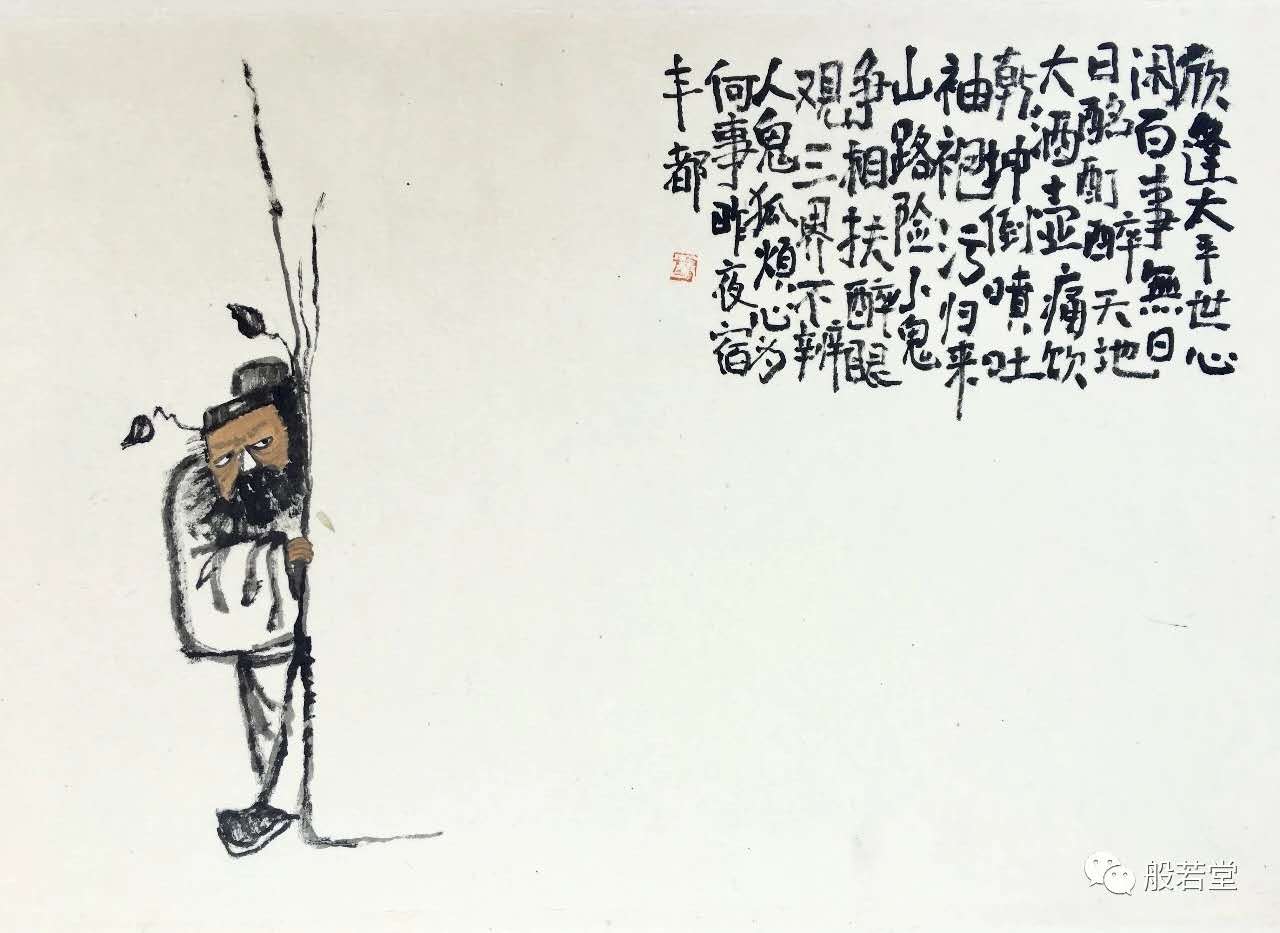 欣逢太平世心
闲百事無日
日酩酊醉天地
大酒壶痛饮
乾坤倒噴吐
袖袍污归来
山路险小鬼
争相扶醉眼
观三界不辨
人鬼狐煩心为
何事昨夜宿
丰都
般若堂